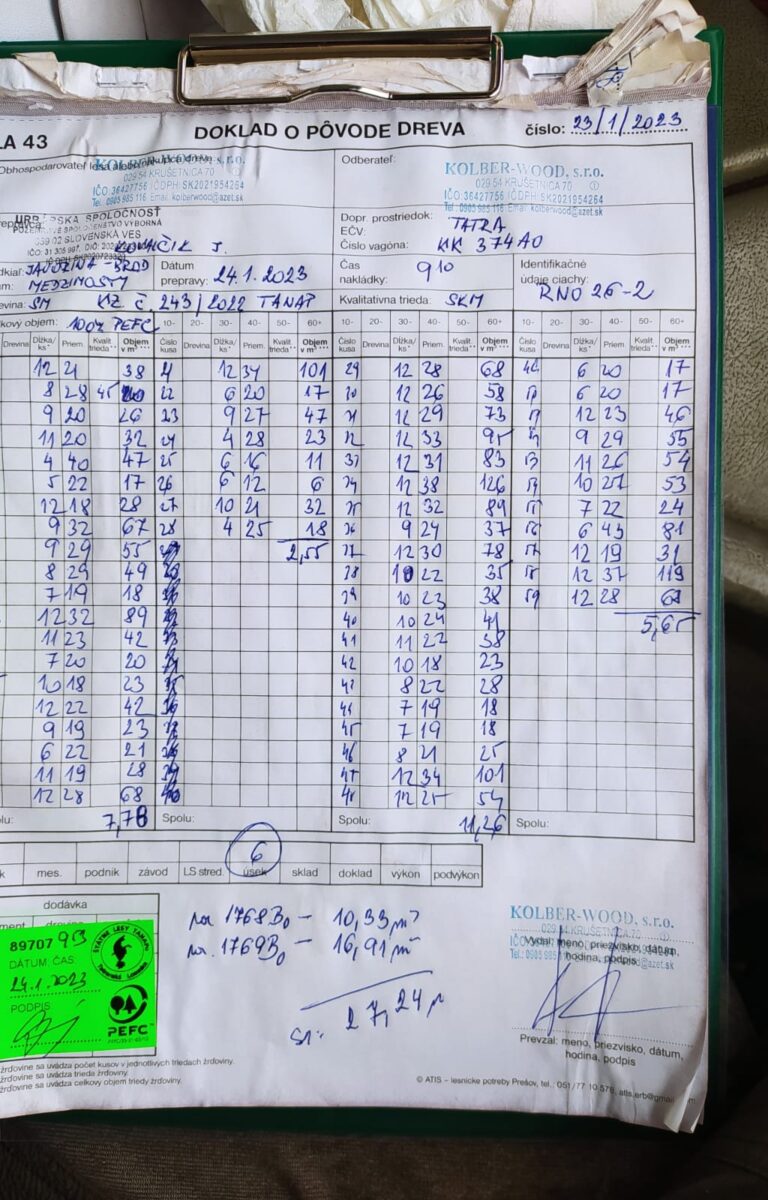 LA 43
DOKLAD O PÔVODE DREVA
číslo: 23/1/2023
KOLBER-WOOD, s.r.o.
029 54 KRUŠETNICA 70
IČO:36427756 IČDPH:SK2021954264
Tel.: 0905 985 116 Email: kolberwood@azet.sk
Odberateľ:
KOLBER-WOOD, s.r.o.
029 54 KRUŠETNICA 70
IČO:36427756 IČDPH:SK2021954264
Tel.: 0905 985 116 Email: kolberwood@azet.sk
URBÁRSKA SPOLOČNOSŤ
POZEMKOVÉ SPOLOČENSTVO VÝBORNÁ
SLOVENSKÁ VES
KOVAČIK J.
Dopr. prostriedok: TATRA
EČV:
Číslo vagóna: KK 374AO
JAVORINA BROD
MEDZIMOSTY
Dátum prepravy: 24.1.2023
Čas nakládky: 910
Identifikačné údaje ciachy: RNO 26-2
SM KZ Č. 243/2022 TANAP
Kvalitatívna trieda: SKM
objem: 100% PEFC
10- 20- 30- 40- 50- 60+ 10- 20- 30- 40- 50- 60+ 10- 20- 30- 40- 50- 60+
Drevina Dĺžka/ks* Priem. Kvalit. trieda** Objem v m³*** Číslo kusa Drevina Dĺžka/ks* Priem. Kvalit. trieda** Objem v m³*** Číslo kusa Drevina Dĺžka/ks* Priem. Kvalit. trieda** Objem v m³*** Číslo kusa Drevina Dĺžka/ks* Priem. Kvalit. trieda** Objem v m³***
12 21 38 12 34 101 29 12 28 68 6 20 17
8 28 45 22 6 20 17 12 26 58 6 20 17
9 20 26 23 9 27 47 12 29 73 12 23 46
11 20 32 24 4 28 23 12 33 95 9 29 55
4 40 47 25 6 16 11 12 31 83 11 26 54
5 22 17 26 6 12 6 12 38 126 10 27 53
12 18 28 27 10 21 32 12 32 89 7 22 24
9 32 67 28 4 25 18 9 24 37 6 43 81
9 29 55 2,55 12 30 78 12 19 31
8 29 49 10 22 35 12 37 119
7 19 18 10 23 38 12 28 68
12 32 89 40 10 24 41 5,65
11 23 42 41 11 22 38
7 20 20 42 10 18 23
10 18 23 8 22 28
12 22 42 7 19 18
9 19 23 45 7 19 18
6 22 21 46 8 21 25
11 19 28 47 12 34 101
12 28 68 12 25 54
7,78 Spolu: Spolu: 11,26 Spolu:
6
mes. podnik závod LS stred. úsek sklad doklad výkon podvýkon
dodávka
89707 953
DÁTUM, ČAS
24.1.2023
PODPIS
ŠTÁTNE LESY TANAPU
PEFC
1768B0 - 10,33 m³
1769B0 - 16,91 m³
27,24
KOLBER-WOOD, s.r.o.
029 54 KRUŠETNICA 70
Vydal: meno, priezvisko, dátum,
hodina, podpis
Prevzal: meno, priezvisko, dátum,
hodina, podpis
žrďovine sa uvádza počet kusov v jednotlivých triedach žrďoviny.
žrďovine sa uvádza trieda žrďoviny.
žrďovine sa uvádza celkový objem triedy žrďoviny.
© ATIS – lesnícke potreby Prešov, tel.: 051/77 10 576, atis.erb@gmail